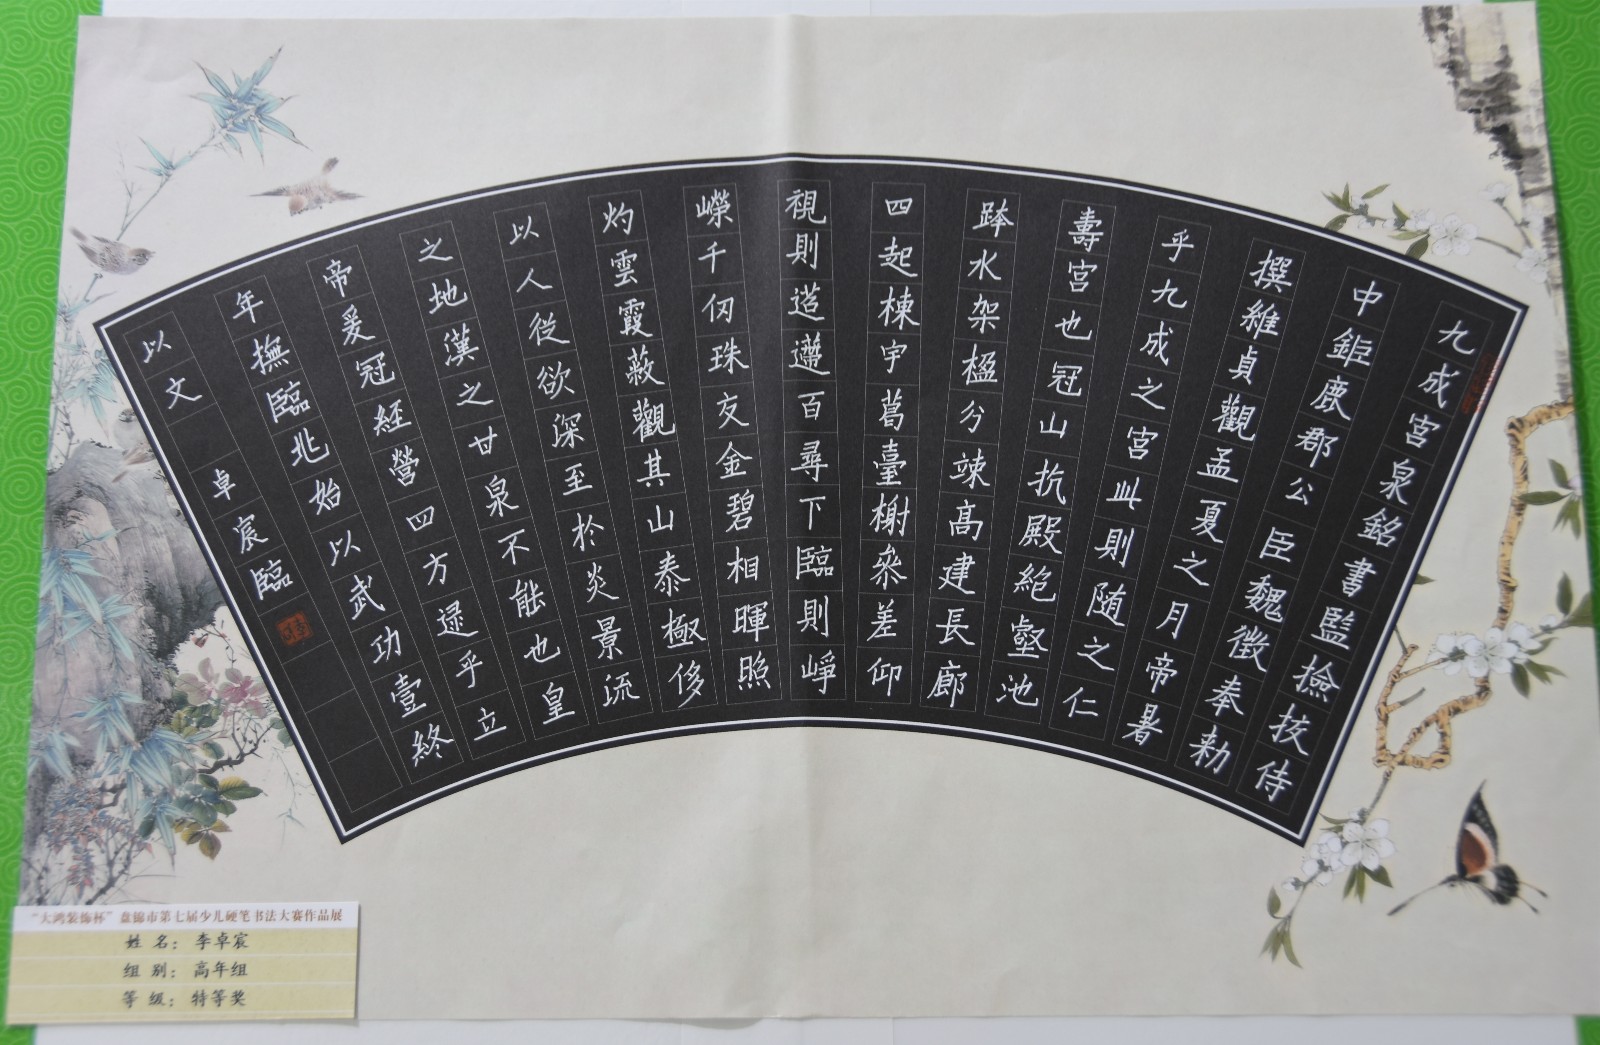 九成宮泉銘書監撿挍侍
中鉅鹿郡公臣魏徵奉勑
撰維貞觀孟夏之月帝暑
乎九成之宮此則隨之仁
壽宮也冠山抗殿絕壑池
水架楹分竦高建長廊
四起棟宇葛臺榭參差仰
視則迢遰百尋下臨則崢
嶸千仞珠友金碧相暉照
灼雲霞蔽觀其山泰極侈
以人從欲深至於炎景流
之地漢之甘泉不能也皇
帝爰冠經營四方逯乎立
年撫臨兆始以武功壹終
以文 卓宸臨
“大鸿装饰杯”盘锦市第七届少儿硬笔书法大赛作品展
姓 名：李卓宸
组 别：高年组
等 级：特等奖